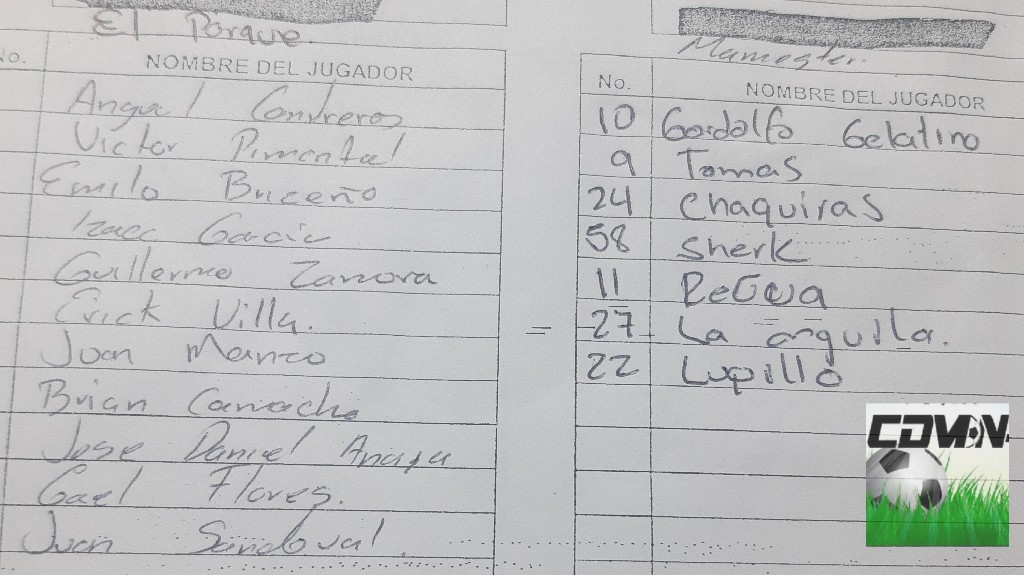 El Parque.
No.
NOMBRE DEL JUGADOR
Angel Contreros
Victor Pimental
Emilo Briceño
Izacc Garcia
Guillermo Zamora
Erick Villa.
Juan Manzo
Brian Camacho
Jose Daniel Anaya
Gael Flores.
Juan Sandoval.
Mamester.
No.
NOMBRE DEL JUGADOR
10 Godolfo Gelatino
9 Tomas
24 Chaquiras
58 Sherk
11
= 27 La anguila.
22 Lupillo
CDMXN